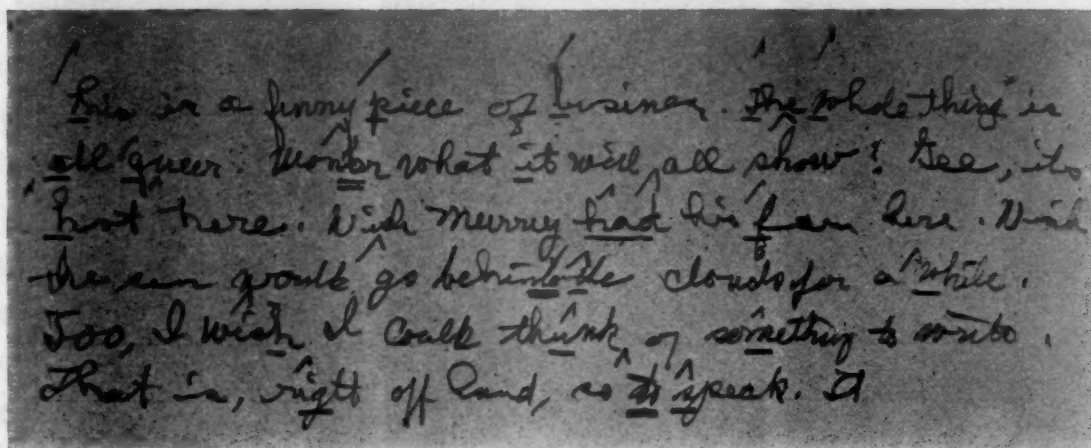 This is a funny piece of business. The whole thing is
all queer. Wonder what it will all show? Gee, its
hot here. Wish Murrey had his fan here. Wish
the sun would go behind the clouds for a while.
Too, I wish I could think of something to write.
That is, right off hand, so to speak. It